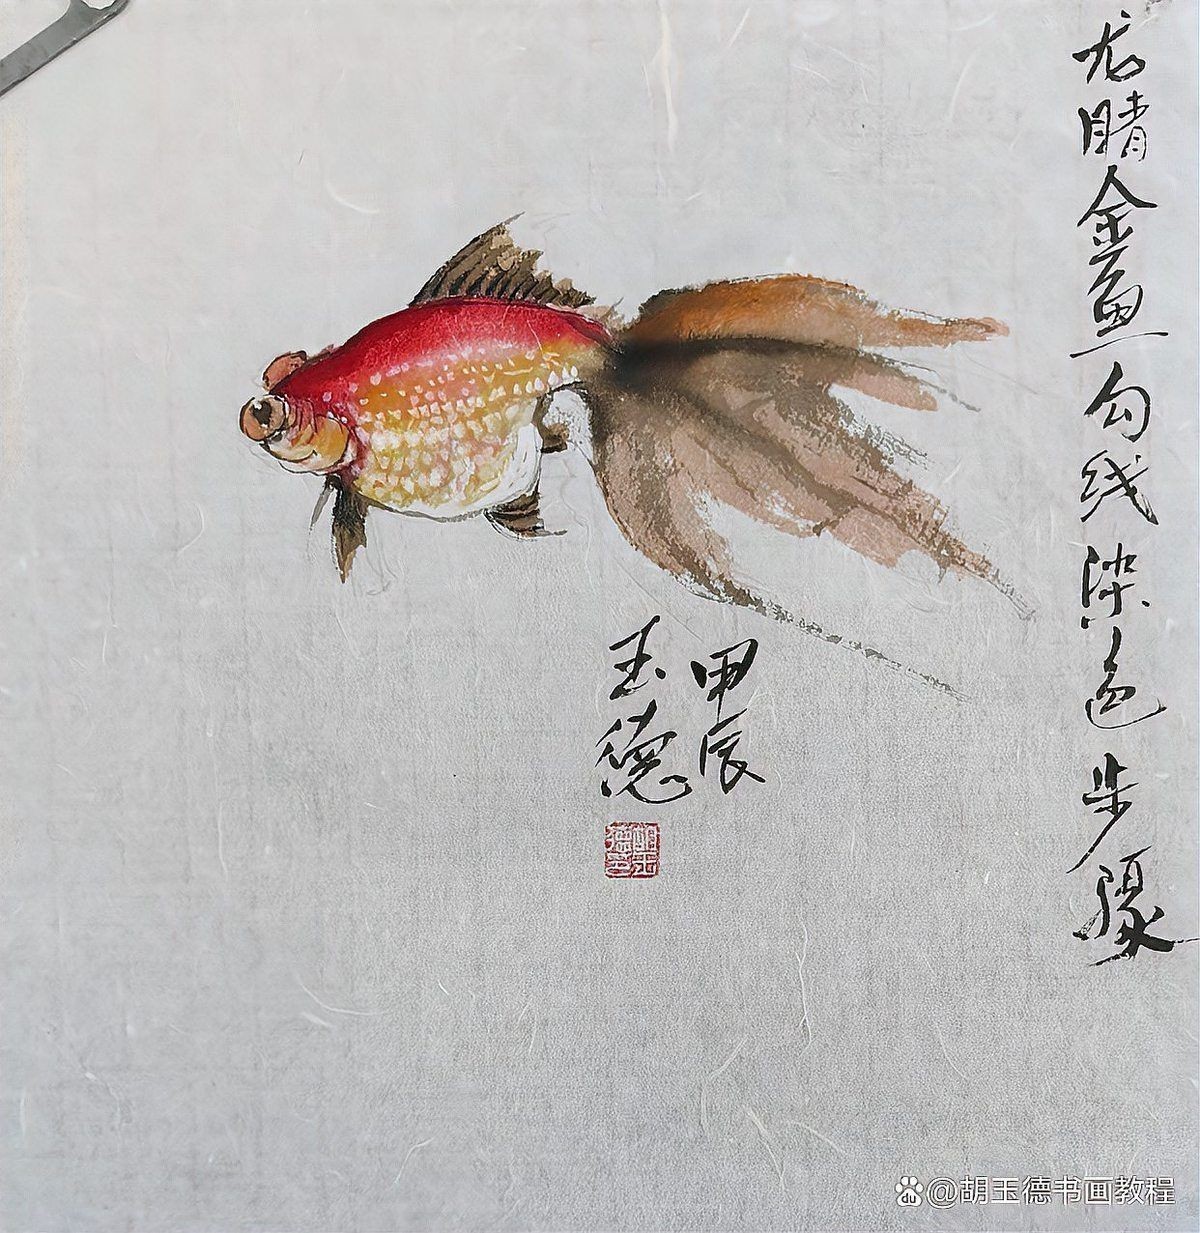 龙睛金鱼勾线染色步骤
甲辰
玉德
胡玉德印
@胡玉德书画教程